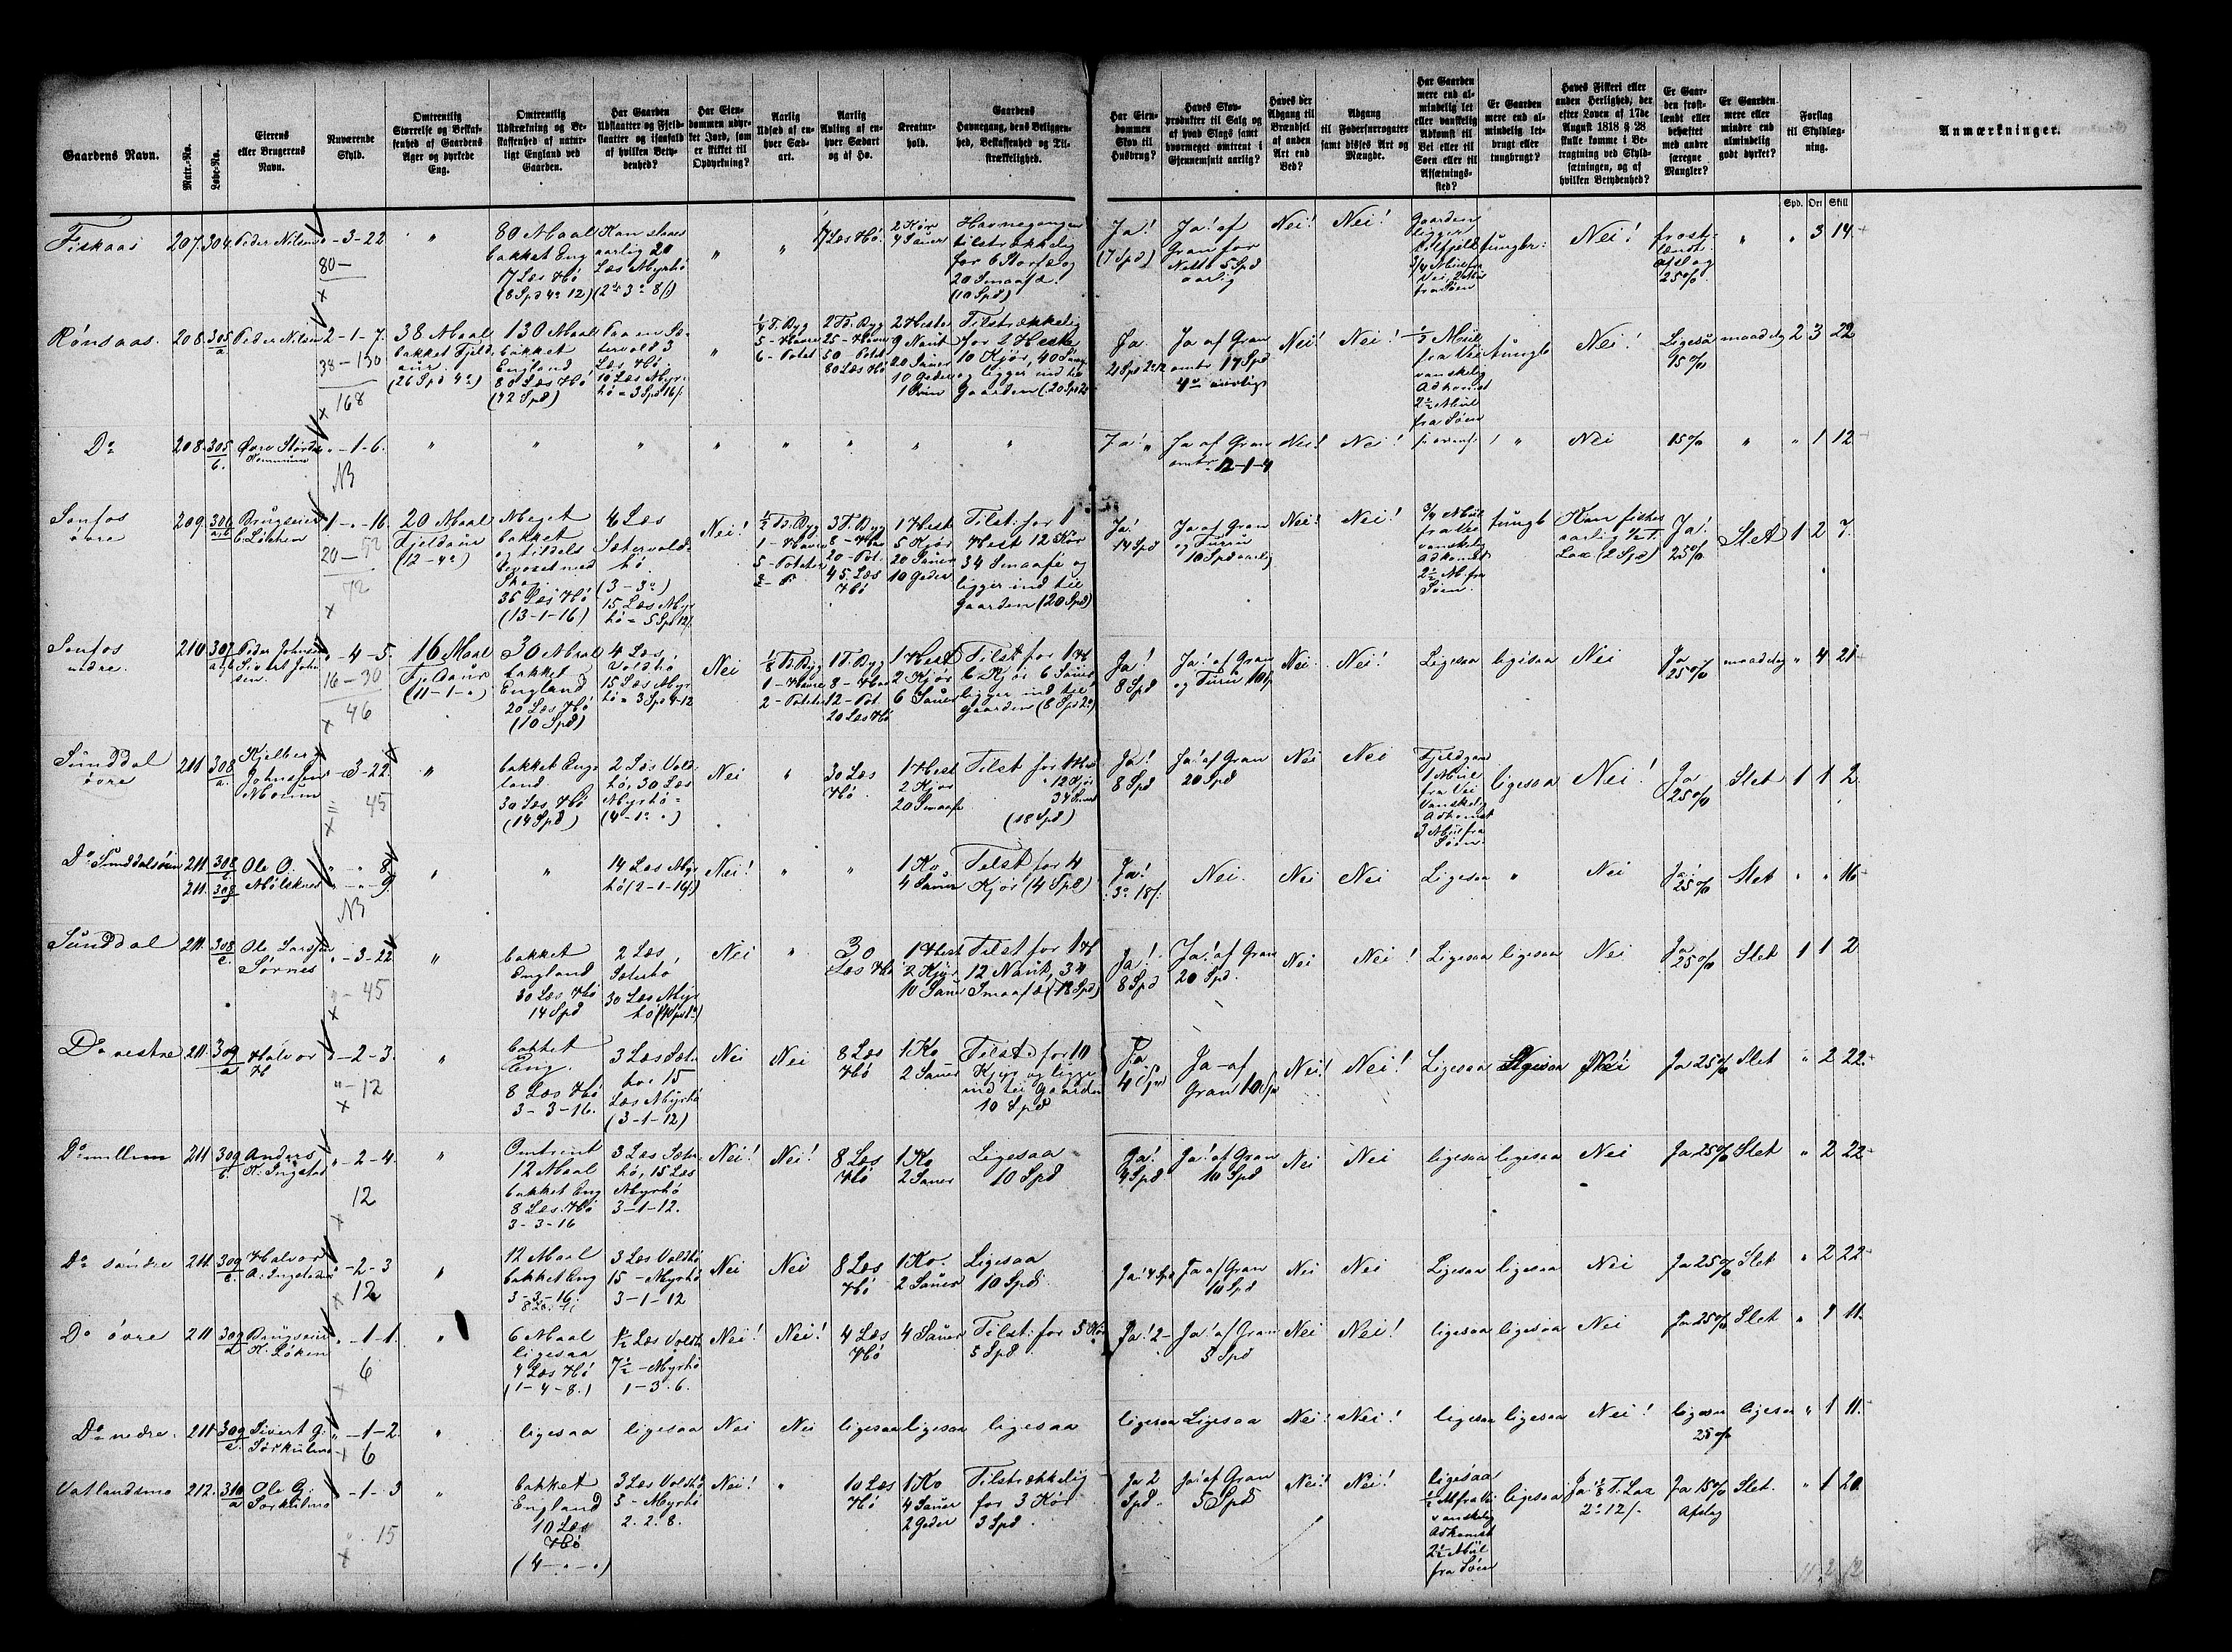 Gaardens Navn.
Matr.-No.
Løbe-No.
Eierens
eller Brugerens
Navn.
Nuværende
Skyld.
Omtrentlig
Størrelse og Beskaf-
fenhed af Gaardens
Ager og dyrkede
Eng.
Omtrentlig
Udstrækning og Be-
skaffenhed af natur-
ligt England ved
Gaarden.
Har Gaarden
Udslaatter og Fjeld-
slaatter og isaafald
af hvilken Bety-
denhed?
Har Eien-
dommen udyr-
ket Jord, som
er skikket til
Opdyrkning?
Aarlig
Udsæd af en-
hver Sæd-
art.
Aarlig
Avling af en-
hver Sædart
og af Hø.
Kreatur-
hold.
Gaardens
Havnegang, dens Beliggen-
hed, Beskaffenhed og Til-
strækkelighed.
Har Eien-
dommen
Skov til
Husbrug?
Haves Skov-
produkter til Salg og
af hvad Slags samt
hvormeget omtrent i
Gjennemsnit aarlig?
Haves der
Adgang til
Brændsel
af anden
Art end
Ved?
Adgang
til Fodersurrogater
samt disses Art og
Mængde.
Har Gaarden
mere end al-
mindelig let
eller vanskelig
Adkomst til
Vei eller til
Søen eller til
Afsætnings-
sted?
Er Gaarden
mere end al-
mindelig let-
brugt eller
tungbrugt?
Haves Fiskeri eller
anden Herlighed, der
efter Loven af 17de
August 1818 § 28
skulle komme i Be-
tragtning ved Skyld-
sætningen, og af
hvilken Betydenhed?
Er Gaar-
den frost-
lændt eller
beheftet
med andre
særegne
Mangler?
Er Gaarden
mere eller
mindre end
almindelig
godt dyrket?
Forslag
til Skyldlæg-
ning.
Anmærkninger.
Spd. Ort Skill
Fiskaas 207. 304. Peder Nilsen " - 3 - 22
80 -
"
80 Maal
bakket Eng
17 Læs Hø
(8 Spd 4 o 12)
Kan slaaes
aarlig 20
Læs Myrhø
"
"
17 Læs Hø.
2 Kør
4 Sauer
Havnegangen
tilstrækkelig
for 6 Storfæ og
20 Smaafæ.
(10 Spd)
Ja!
(7 Spd)
Ja! af
Gran for
Netto 5 Spd
aarlig
Nei!
Nei!
Gaarden
ligger
3/4 Mil fra
fra Søen
tungbr:
Nei!
frost-
lændt.
afslag
25%.
"
" 3 14
Rønsaas. 208. 305/a Peder Nilsen 2 - 1 - 7.
38 - 130
168
38 Maal
bakket Fjeld
aur.
(26 Spd 4 o)
130 Maal
bakket
England
80 Læs Hø
(42 Spd)
3
Læs Hø.
10 Læs Myr-
hø = 3 Spd 16/
"
5 - Havre
6 - Potet
2 Td. Byg
25 - Havre
50 - Potet
80 Læs Hø
2 Heste
9 Naut
20 Sauer
10 Geder
1 Svin
Tilstrækkelig
for 2 Heste
10 Kjør, 40 Smaafæ
og ligger ind til
Gaarden
Ja
Ja af Gran
omtr 17 Spd
4 o aarlig
Nei!
Nei!
1/2 Miil
fra Vei
vanskelig
Adkomst
2 1/2 Miil
fra Søen
tungb
Nei!
Ligesaa
15%
maadelig
2 3 22
Do 208. 305/b. Øvre Størdalens
Kommune " - 1 - 6.
NB
" " " " " " " "
Ja! "
Ja af Gran
omtr 12 - 1 - 4
Nei!
Nei!
"
Nei
15%
"
" 1 12
Sonfos
øvre
209. 306/a,b Brugseier
E. Lökken 1 - " - 16.
20 - 52
72
20 Maal
Fjeldaur
(12 - 4 o)
Meget
bakket
og tildels
bevoxet med
Skog.
35 Læs Hø
(13 - 1 - 16)
6 Læs
Sætervold-
hø.
(3 - 3 o)
15 Læs Myr
hø = 5 Spd 12/
Nei!
1/2 Td. Byg
1 - Havre
5 - Poteter
3 T. Byg
8 - Hav
20 - Pot.
45 Læs
Hø
1 Hest
5 Kjør
20 Sauer
10 Geder
Tilst: for 1
Hest 12 Kör
34 Smaafæ og
ligger ind til
Gaarden (20 Spd)
Ja!
14 Spd
Ja af Gran
og Furru
10 Spd aarlig
Nei!
Nei!
3/4 Miil
fra Vei
vanskelig
Adkomst
2 1/2 M. fra
Søen.
tungb
Kan fiskes
aarlig 1/2 T.
Lax (2 Spd)
Ja!
25%
Slet
1 2 7.
Sonfos
nedre.
210 307/a,b Peder Johnsen
Sivert John
sen. " - 4 - 5.
16 - 30
46
16 Maal
Fj. Aaur
(11 - 1 - ")
30 Maal
bakket
England
20 Læs Hø
(10 Spd)
4 Læs
Voldhø
15 Læs Myr
hø = 3 Spd 4 - 12
Nei
1/8 Td. Byg
1 - Havre
2 - Poteter
1 T. Byg
8 - Hav
12 - Pot.
20 Læs Hø
1 Hest
2 Kjør
6 Sauer
Tilst for 1 H
6 Kjør 6 Sauer
ligger ind til
Gaarden (8 Spd 2 o)
Ja!
8 Spd
Ja! af Gran
og Furu 10
Nei
Nei!
Ligesaa
ligesaa
Nei
Ja
25%
maadelig
" 4 21
Sunddal
øvre
211 308/a. Kjelberg
Johnsen
Moum " - 3 - 22
" 45
"
bakket Eng-
land.
30 Læs Hø
(14 Spd)
2 Læs Vold-
hø, 30 Læs
Myrhø =
(4 - 1 o - ")
Nei
"
30 Læs
Hø
1 Hest
2 Kjør
20 Smaafæ
Tilst for 1 Hest
" 12 Kjør
34 Smaa
(18 Spd)
Ja!
8 Spd
Ja! af Gran
20 Spd
Nei
Nei
1 Miil
fra Vei
Vanskelig
Adkomst
3 Miil fra
Søen.
ligesaa
Nei!
Ja
25%
Slet
1 1 2
Do Sunddalsøien 211 308/b Ole O.
211. 308 Mølsknes
" - " 8.
" - " - 9
NB
"
"
14 Læs Myr
hø (2 - 1 - 16/)
Nei!
"
"
1 Ko
4 Sauer
Tilst for 4
Kjør (4 Spd)
Ja!
3 o 18/.
Nei.
Nei
Nei
Ligesaa
"
Nei
Ja!
25%
Slet
" " 16
Sunddal 211. 308/c. Ole Larssen
Sørnes " - 3 - 22
45
"
bakket
England
30 Læs Hø
14 Spd
2 Læs
Sæterhø
30 Læs Myr
hø
Nei
"
30
Læs Hø
1 Hest
2 Kjør
10 Sauer
Tilst for 1 H
12 Naut, 34
Smaafæ (18 Spd)
Ja!
8 Spd
Ja! af Gran
20 Spd.
Nei
Nei!
Ligesaa
ligesaa
Nei
Ja
25%
Slet
1 1 2
Do vestre 211. 309/a Halvor
H " - 2 - 3.
" - 12
"
bakket
Eng.
8 Læs Hø
3 - 3 - 16.
3 Læs Sæt.
hø. 15
Læs Myrhø
(3 - 1 - 12)
Nei
Nei
8 Læs
Hø
1 Ko
2 Sauer
Tilst for 10
Kjør og ligge
ind til Gaarden
10 Spd
Ja
4 Spd
Ja - af
Gran 10 Spd
Nei!
Nei!
Ligesaa
Ligesaa
Nei
Ja 25%
Slet
" 2 22
Do mellem 211 309/b. Anders
H. Ingstad " - 2 - 4.
12
"
Omtrent
12 Maal
bakket Eng
8 Læs. Hø
3 - 3 - 16
3 Læs Sæter
hø, 15 Læs
Myrhø
3 - 1 - 12.
Nei!
Nei!
8 Læs
Hø
1 Ko
2 Sauer
Ligesaa
10 Spd
Ja!
4 Spd
Ja! af Gran
10 Spd
Nei
Nei
ligesaa
ligesaa
Nei
Ja 25%
Slet
" 2 22
Do søndre 211. 309/c. Halvor
A. Ingstad " - 2 - 3
12
"
12 Maal
bakket Eng
3 - 3 - 16.
8 Læs Hø
3 Læs Voldhø
15 - Myrhø
3 - 1 - 12
Nei
Nei
8 Læs
Hø
1 Ko.
2 Sauer
Ligesaa
10 Spd.
Ja! 4 Spd
Ja af Gran
10 Spd
Nei
Nei
Ligesaa
ligesaa
Nei
Ja 25%
Slet
" 2 22
Do øvre 211 309/d Brugseier
H. Löken " - 1 - 1.
6
"
6 Maal
ligesaa
4 Læs Hø
(1 - 4 - 8.)
1 1/2 Læs Voldh
7 1/2 - Myrhø
1 - 3. 6.
Nei!
Nei!
4 Læs
Hø
4 Sauer
Tilst: for 5 Kør
5 Spd
Ja! 2 -
Ja! af Gran
5 Spd
Nei
Nei!
ligesaa
ligesaa
Nei
Ja 25%
Slet
" 1 11.
Do nedre. 211 309/e. Sivert G.
Sørkulmo " - 1 - 2.
6
"
ligesaa
ligesaa
Nei
Nei
ligesaa
ligesaa
ligesaa
ligesaa
Ligesaa
Nei!
Nei!
ligesaa
ligesaa
Nei!
ligesaa
25%
ligesaa
" 1 11.
Vatlandsmo 212. 310/a Ole G.
Sorkulmo " - 1 - 3
" 15
"
bakket
England
10 Læs
Hø
(4 - " - ")
3 Læs Voldhø
3 - Myrhø
2. 2. 8.
Nei!
"
10 Læs
Hø
1 Ko
4 Sauer
2 Geder
Tilstrækkelig
for 3 Kør
3 Spd.
Ja 2
Spd.
Ja! af Gran
5 Spd
Nei!
Nei!
ligesaa
1/2 M fra Vei
vanskelig
Adkomst
2 1/2 Miil
fra Søen
ligesaa
Ja 1/8 T. Lax
2 o 12/.
Ja 15%
Afslag
Slet.
" 1 20
11 2 12